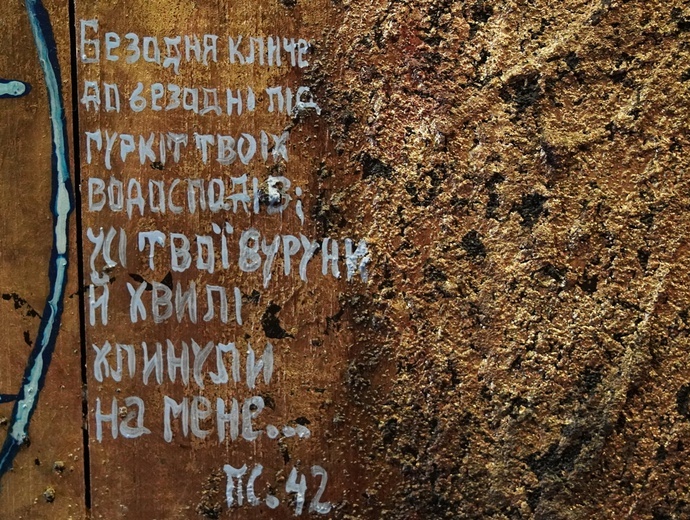 Безодня кличе
до безодні під
гуркіт твоїх
водоспадів;
усі твої буруни
й хвилі
хлинули
на мене...
ПС. 42